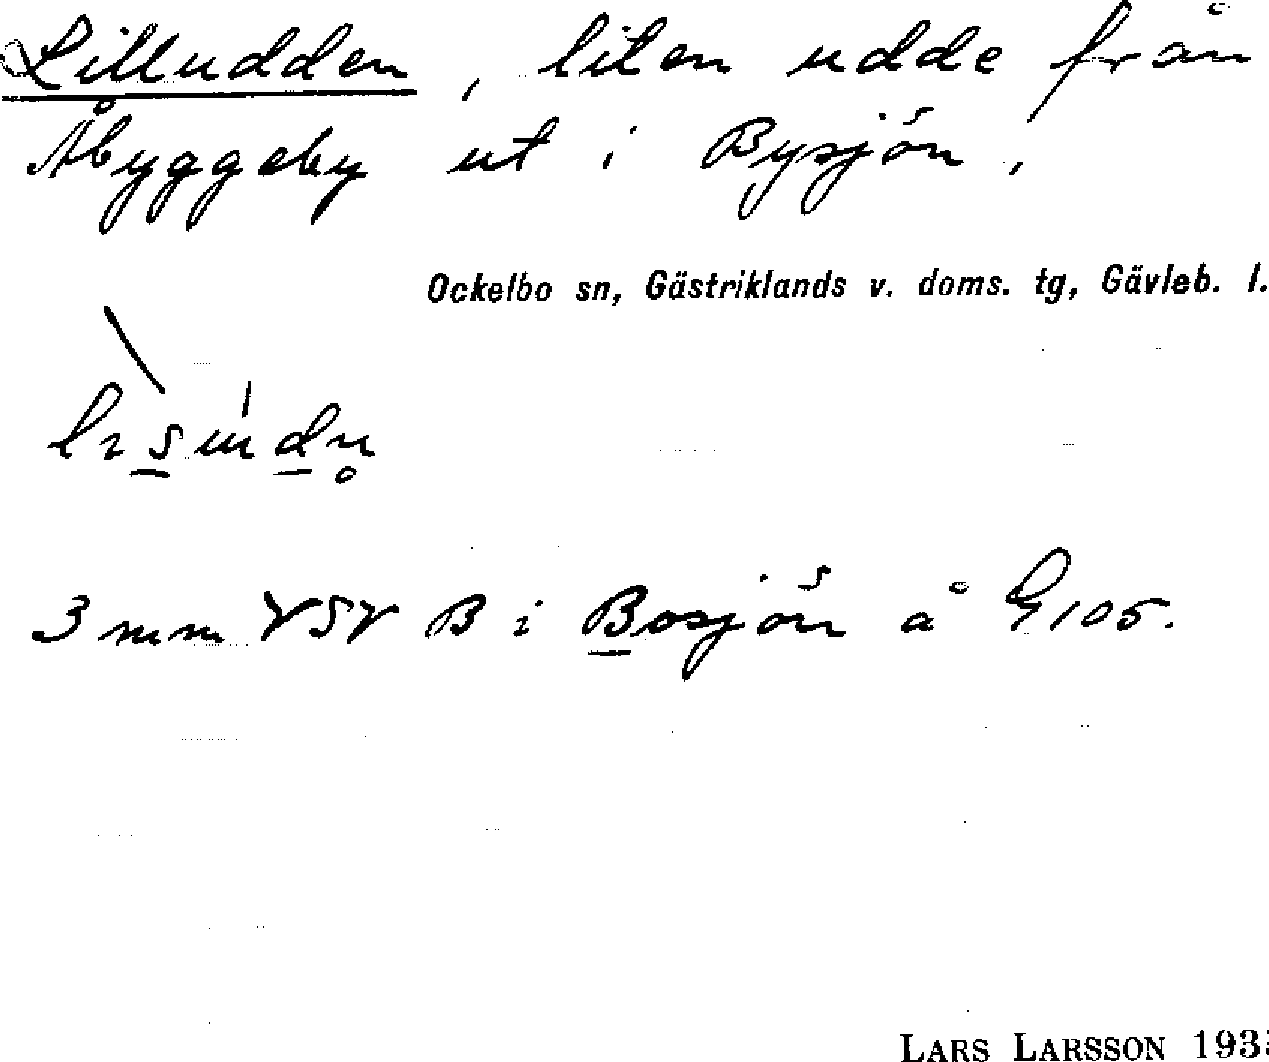 Lilludden, liten udde från
Åbyggeby ut i Bysjön.
Ockelbo sn, Gästriklands v. doms. tg, Gävleb. l.
3 mm VSV B i Bosjön å G105.
LARS LARSSON 193